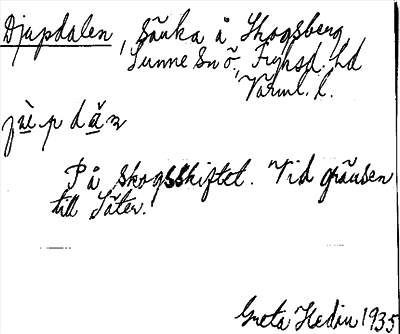 Djupdalen, Sänka å Skogsberg
Sunne Sn ö., Fryksd. hd
Värml. l.
jʉ̀p dǎn
På skogsskiftet. Vid gränsen
till Säter.
Greta Hedin 1935